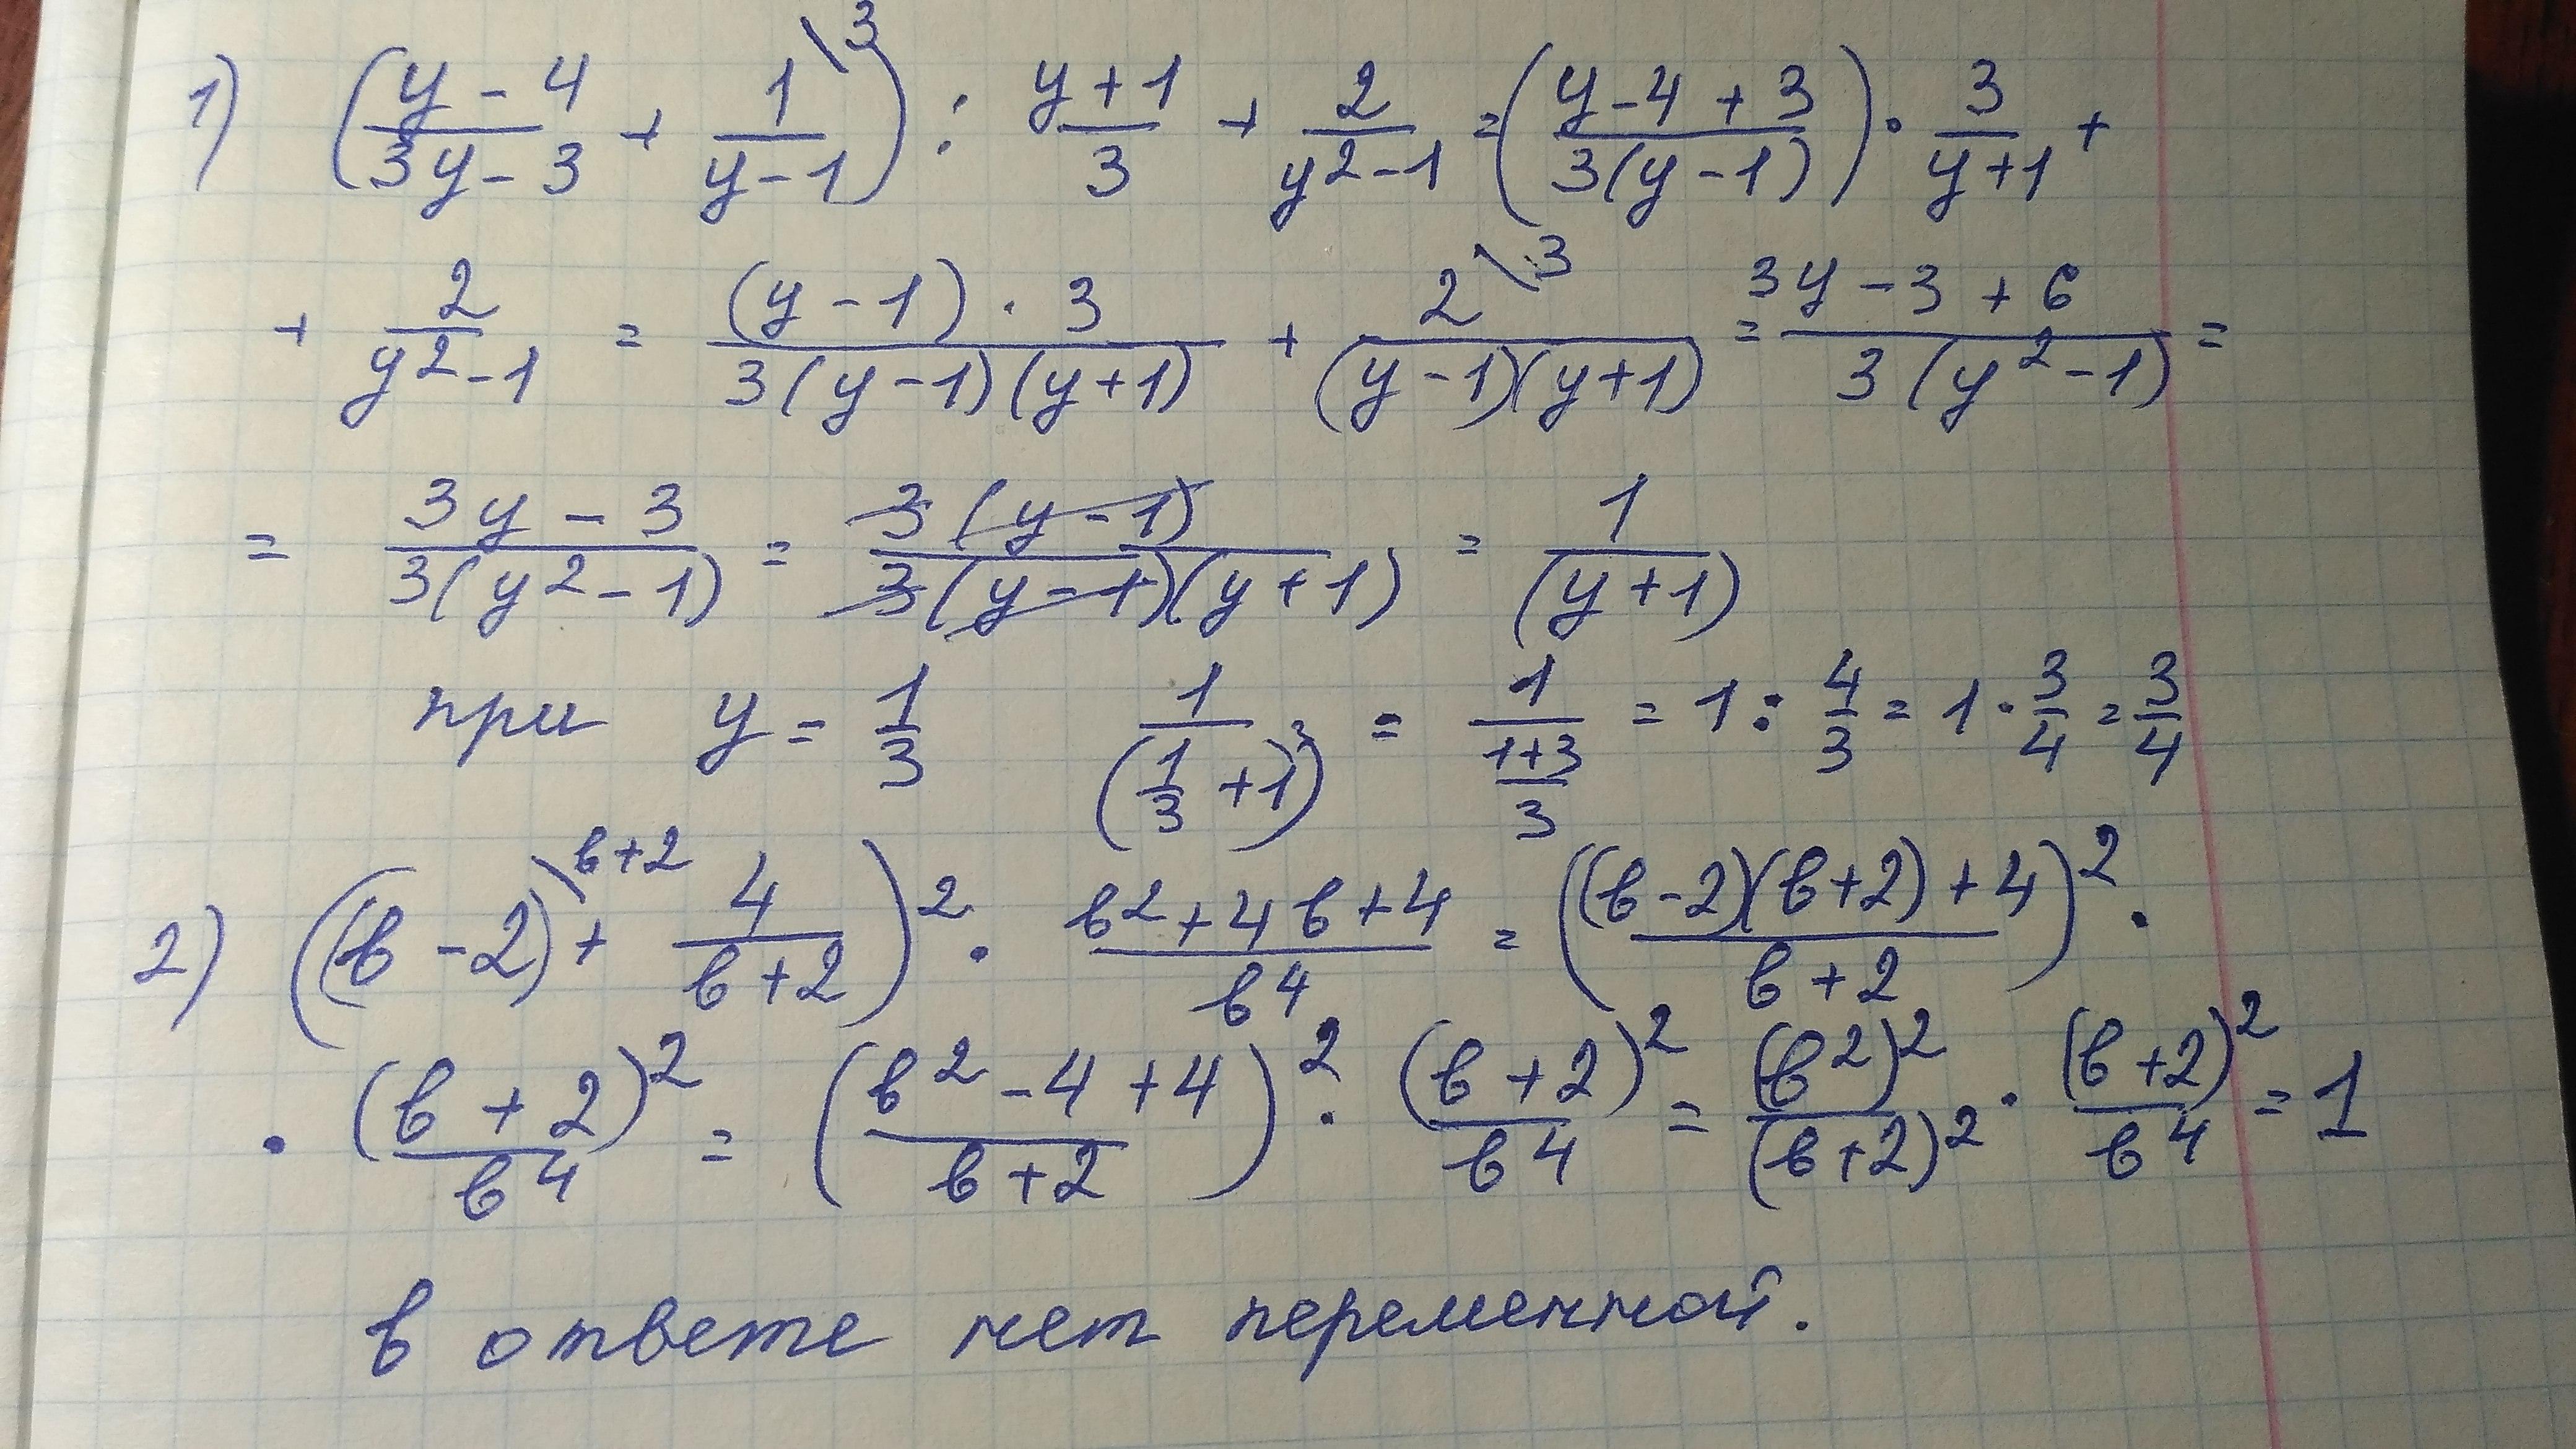 1) ( (y-4)/(3y-3) + 1\3/(y-1) ) : (y+1)/3 + 2/(y²-1) = ( (y-4+3)/(3(y-1)) ) · 3/(y+1) +
+ 2/(y²-1) = ((y-1)·3)/(3(y-1)(y+1)) + 2\3/((y-1)(y+1)) = (3y-3+6)/(3(y²-1)) =
= (3y-3)/(3(y²-1)) = (3(y-1))/(3(y-1)(y+1)) = 1/(y+1)
при y = 1/3 1/(1/3+1\3) = 1/((1+3)/3) = 1 : 4/3 = 1 · 3/4 = 3/4
2) ((в-2)\в+2 + 4/(в+2))² · (в²+4в+4)/в⁴ = (((в-2)(в+2)+4)/(в+2))² ·
· (в+2)²/в⁴ = ((в²-4+4)/(в+2))² · (в+2)²/в⁴ = (в²)²/(в+2)² · (в+2)²/в⁴ = 1
в ответе нет переменной.